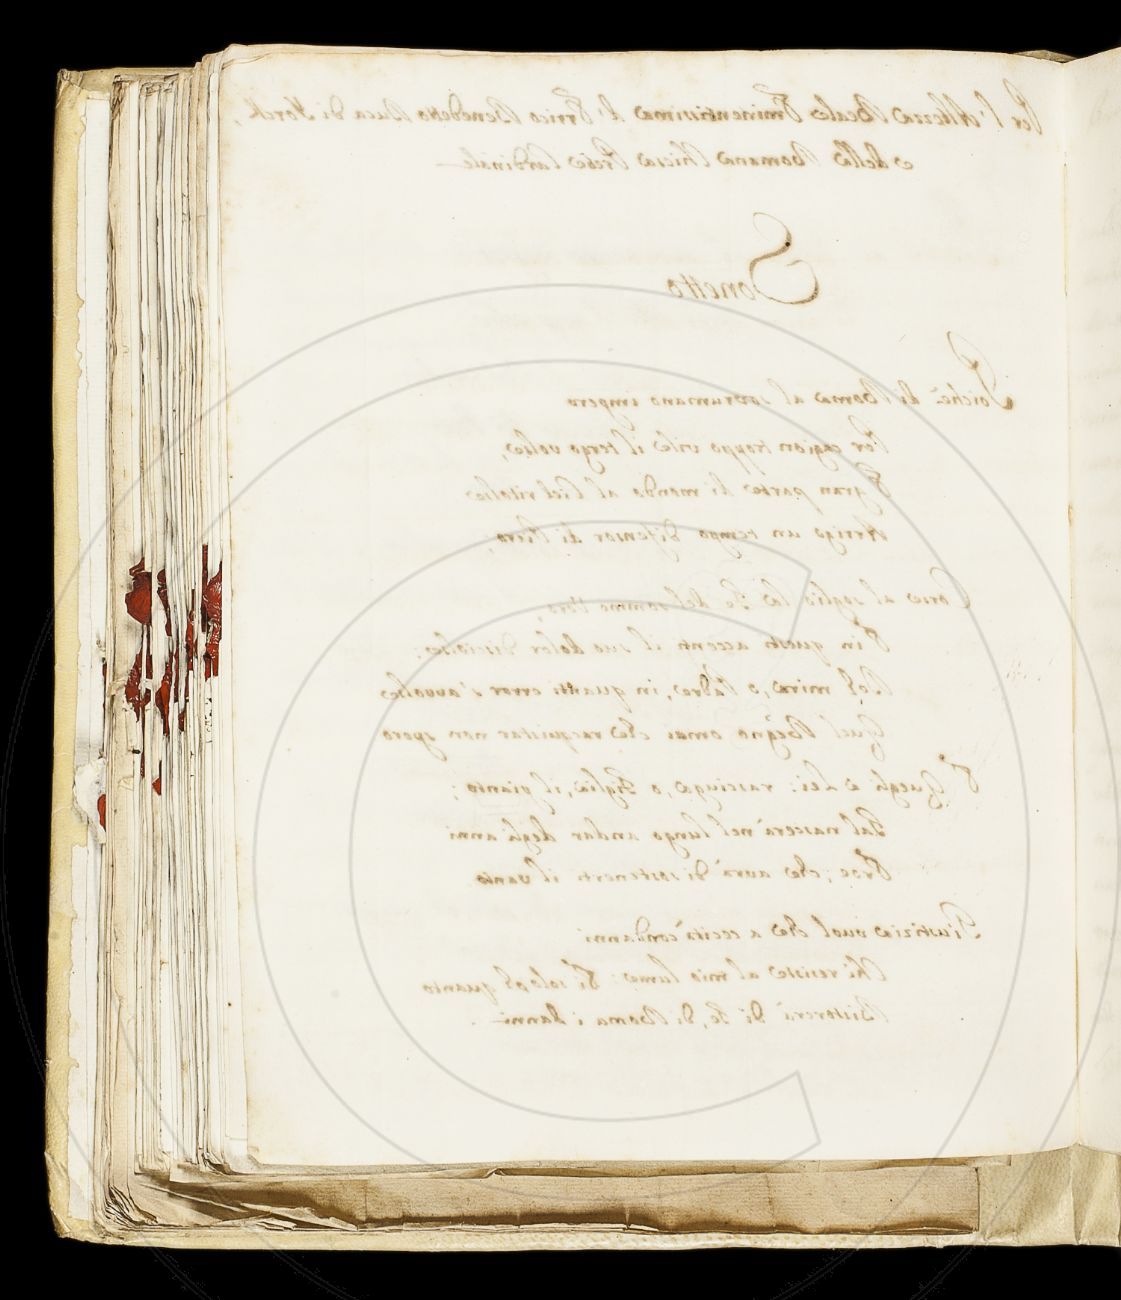 Per l'Altezza Reale Eminentissima d'Errico Benedetto Duca di Yorck,
e della Romana Chiesa Prete Cardinale
Sonetto
Poichè di Roma al sovrumano impero
Per cagion troppo vile il tergo volse,
E gran parte di mondo al Ciel ritolse
Arrigo un tempo difensor di Piero;
Corse al soglio la Fè del sommo Vero,
E in questi accenti il suo dolor disciolse:
Deh mira, o Padre, in quanti error s'avvolse
Quel Regno omai che racquistar non spero
E Quegli a Lei: rasciuga, o Figlia, il pianto;
Tal nascerà nel lungo andar degli anni
Eroe, che avrà di sostenerti il vanto.
Giustizia vuol che a cecità condanni
Chi resiste al mio lume: Ei solo quanto
Ristorerà di Fè, di Roma i danni